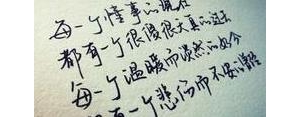 每一个懂事的现在
都有一个很傻很天真的过去
每一个温暖而淡然的如今
有一个悲伤而不安的曾经